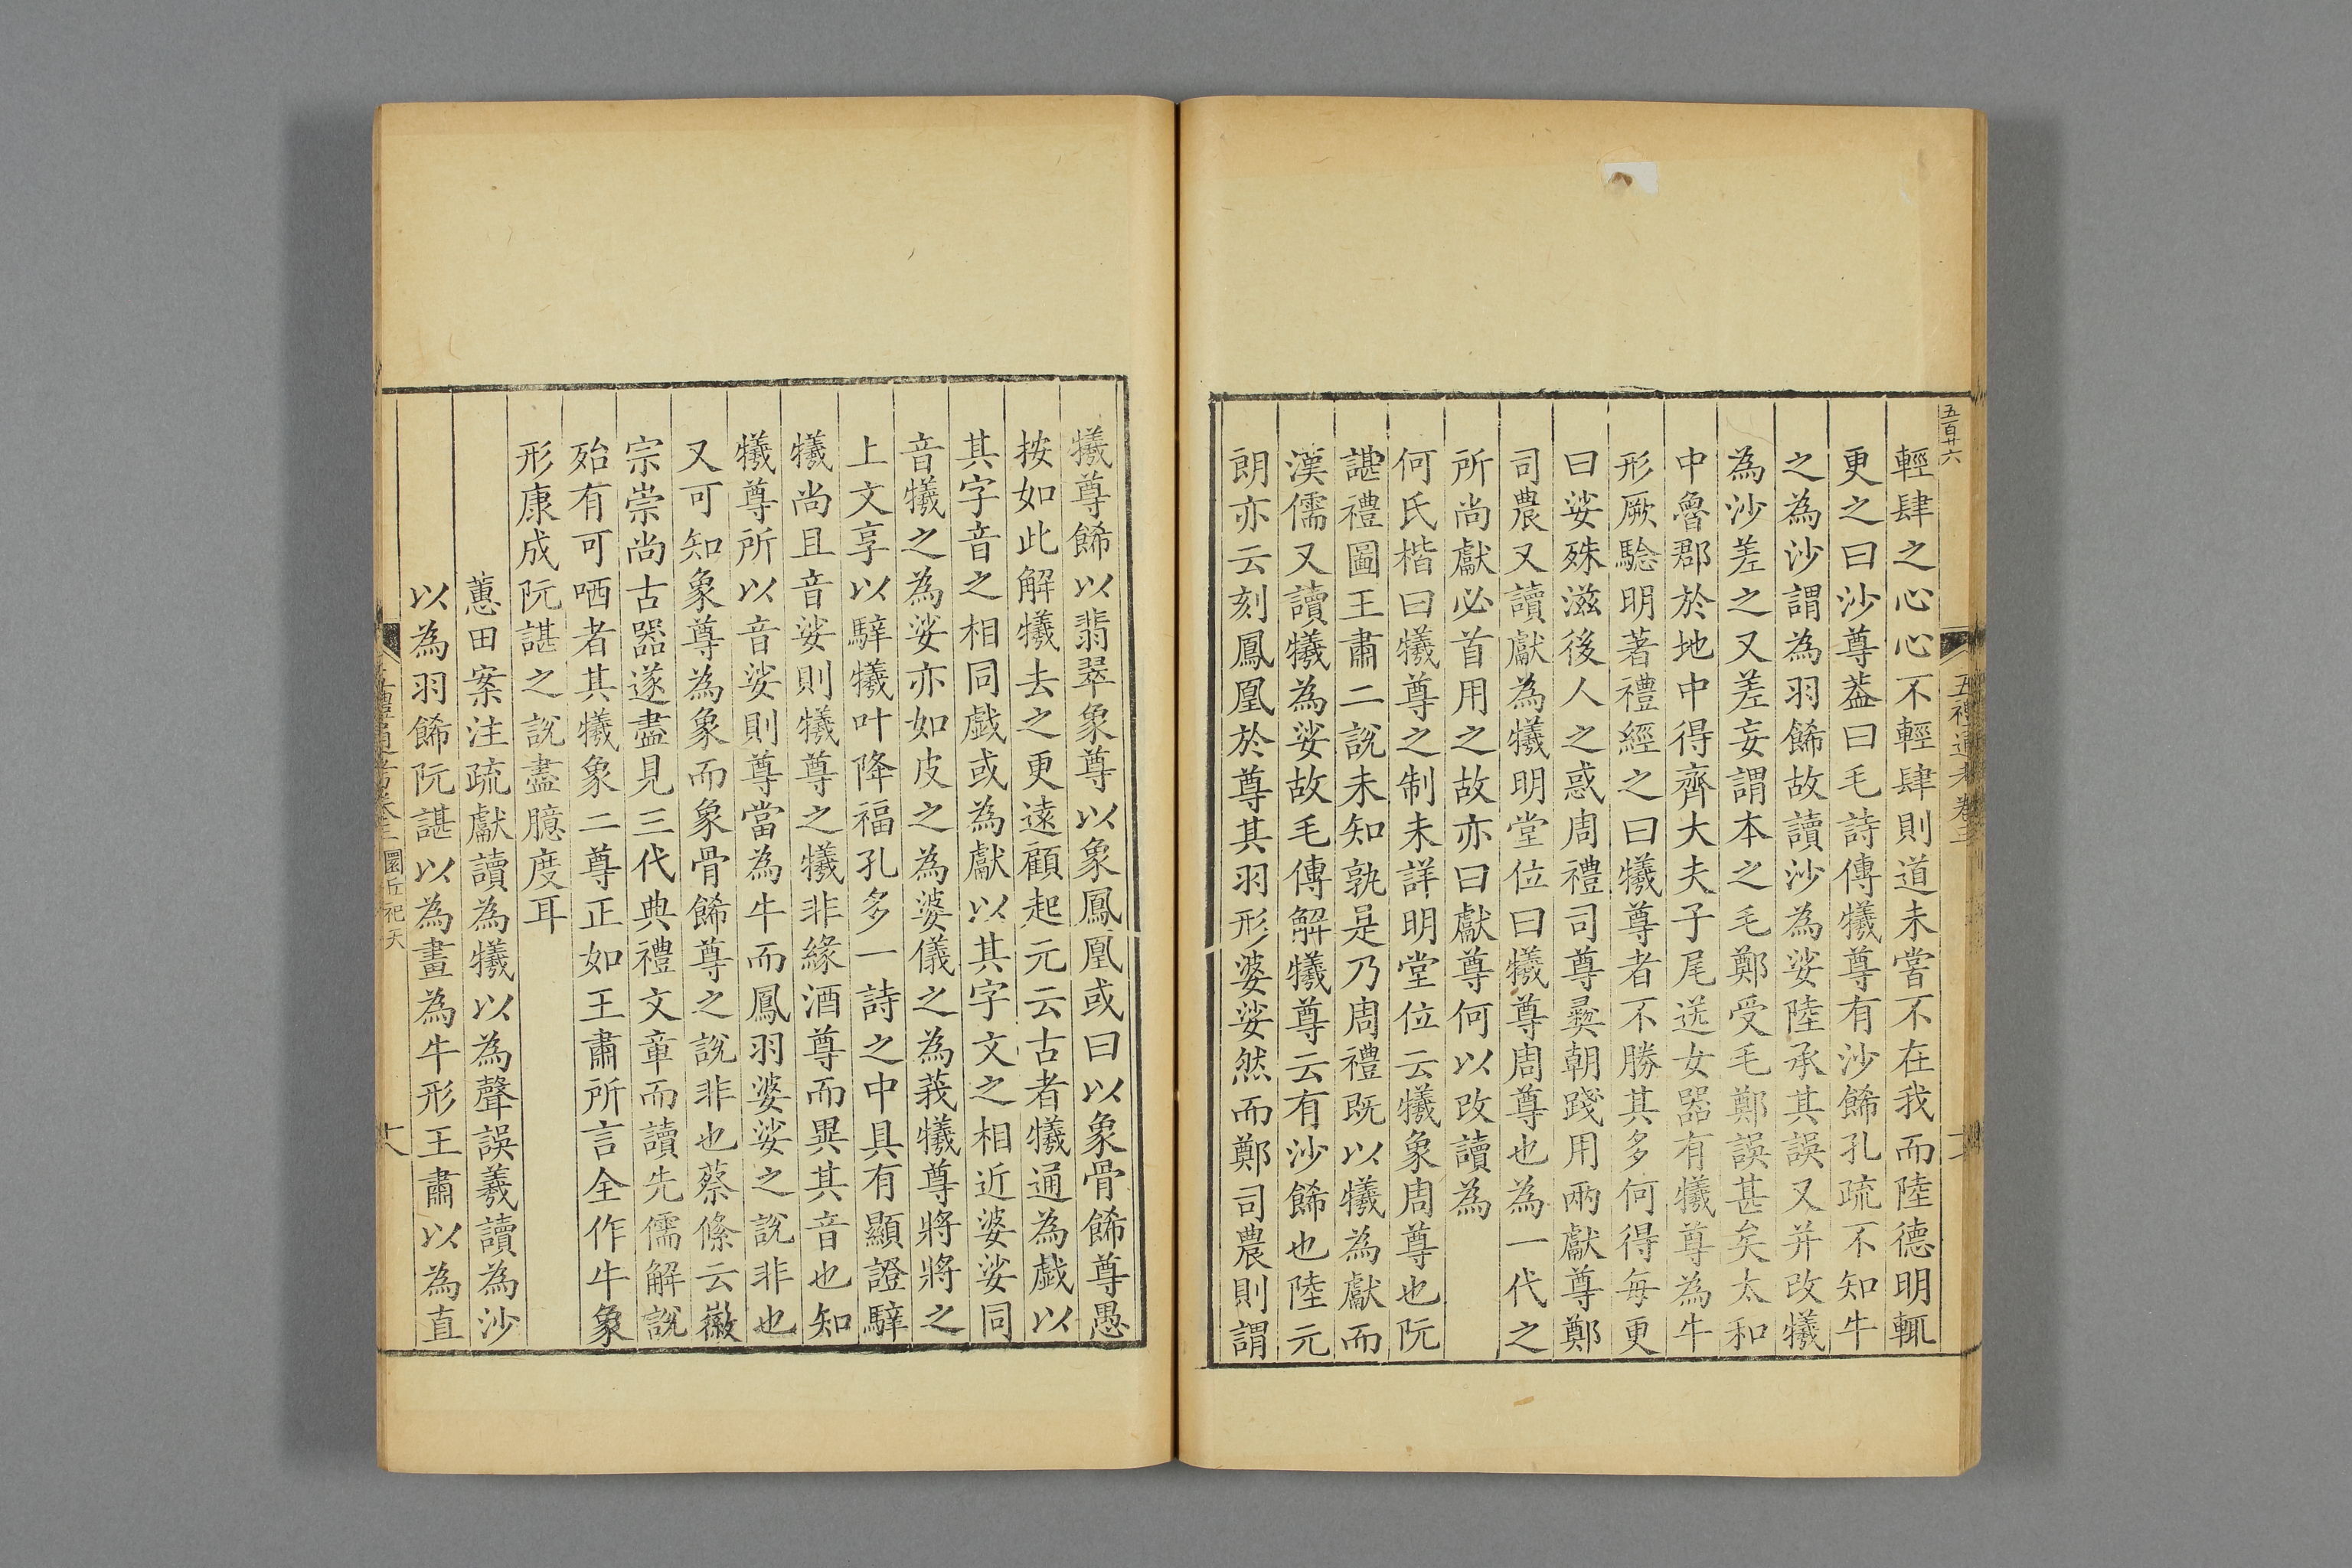 五百廿六
五禮通考卷三
輕肆之心心不輕肆則道未嘗不在我而陸德明輒
更之曰沙尊葢曰毛詩傳犧尊有沙餙孔疏不知牛
之為沙謂為羽餙故讀沙為娑陸承其誤又并改犧
為沙差之又差妄謂本之毛鄭受毛鄭誤甚矣太和
中魯郡於地中得齊大夫子尾送女器有犧尊為牛
形厥騐明著禮經之曰犧尊者不勝其多何得每更
曰娑殊滋後人之惑周禮司尊彝朝踐用兩獻尊鄭
司農又讀獻為犧明堂位曰犧尊周尊也為一代之
所尚獻必首用之故亦曰獻尊何以改讀為
何氏楷曰犧尊之制未詳明堂位云犧象周尊也阮
諶禮圖王肅二說未知孰是乃周禮既以犧為獻而
漢儒又讀犧為娑故毛傳解犧尊云有沙餙也陸元
朗亦云刻鳳凰於尊其羽形婆娑然而鄭司農則謂
犧尊餙以翡翠象尊以象鳳凰或曰以象骨餙尊愚
按如此解犧去之更遠顧起元云古者犧通為戲以
其字音之相同戲或為獻以其字文之相近婆娑同
音犧之為娑亦如皮之為婆儀之為莪犧尊將將之
上文享以騂犧叶降福孔多一詩之中具有顯證騂
犧尚且音娑則犧尊之犧非緣酒尊而異其音也知
犧尊所以音娑則尊當為牛而鳳羽婆娑之說非也
又可知象尊為象而象骨餙尊之說非也蔡絛云徽
宗崇尚古器遂盡見三代典禮文章而讀先儒解說
殆有可哂者其犧象二尊正如王肅所言全作牛象
形康成阮諶之說盡臆度耳
蕙田案注疏獻讀為犧以為聲誤羲讀為沙
以為羽餙阮諶以為畫為牛形王肅以為直
圜丘祀天